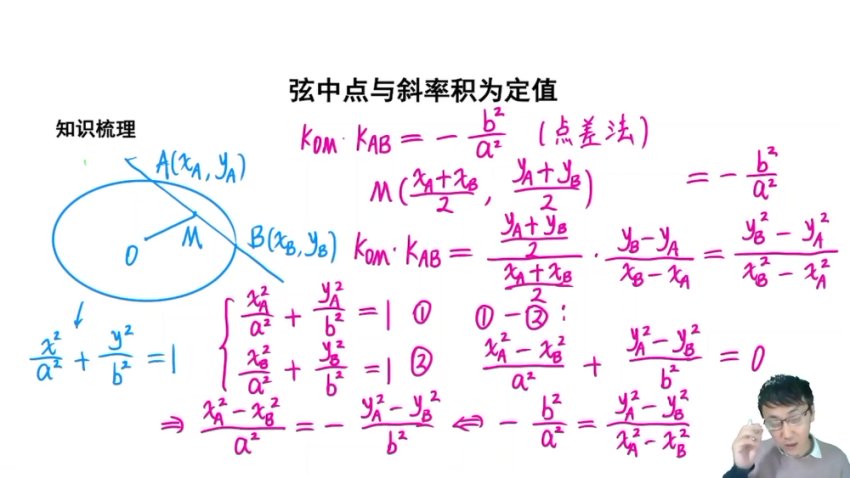 弦中点与斜率积为定值
知识梳理
k_{OM}·k_{AB} = -\frac{b²}{a²} (点差法)
A(x_A, y_A)
M(\frac{x_A+x_B}{2}, \frac{y_A+y_B}{2})
= -\frac{b²}{a²}
O
M
B(x_B, y_B)
k_{OM}·k_{AB} = \frac{\frac{y_A+y_B}{2}}{\frac{x_A+x_B}{2}}·\frac{y_B-y_A}{x_B-x_A} = \frac{y_B²-y_A²}{x_B²-x_A²}
\frac{x²}{a²} + \frac{y²}{b²} = 1
\frac{x_A²}{a²} + \frac{y_A²}{b²} = 1 ①
\frac{x_B²}{a²} + \frac{y_B²}{b²} = 1 ②
①-②:
\frac{x_A²-x_B²}{a²} + \frac{y_A²-y_B²}{b²} = 0
⇒ \frac{x_A²-x_B²}{a²} = -\frac{y_A²-y_B²}{b²} ⇔ -\frac{b²}{a²} = \frac{y_A²-y_B²}{x_A²-x_B²}